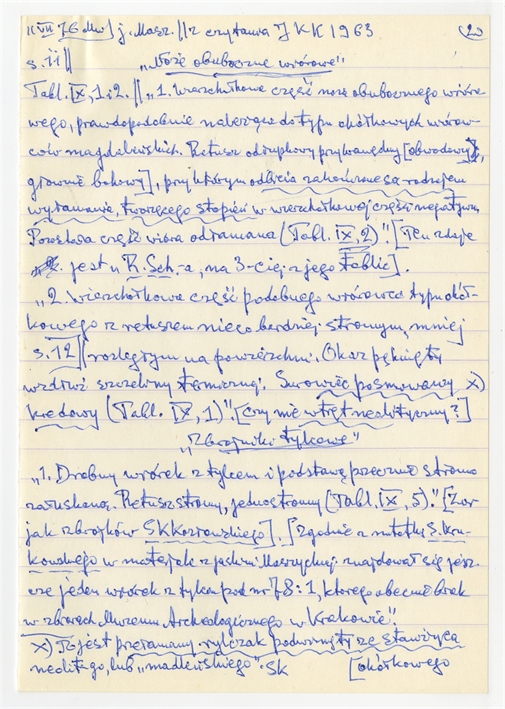 11 VII 76 j. Masz. || z czytania JKK 1963 20
s. 11 || „Noże obuboczne wiórowe"
Tabl. IX, 1 i 2. || „1. Wierzchołkowa część noża obubocznego wióro-
wego, prawdopodobnie należącego do typu okółkowych wiórow-
ców magdaleńskich. Retusz odłupkowy przykrawędny [obwodowy],
głównie bokowy], przy którym odbicia zakończone są rodzajem
wyłamania, tworzącego stopień w wierzchołkowej części negatywu.
Pozostała część wióra odłamana (Tabl. IX, 2)". [Ten zdaje
się jest u R. Sch.-a, na 3-ciej z jego tablic].
„2. Wierzchołkowa część podobnego wiórowca typu okół-
kowego z retuszem nieco bardziej stromym, mniej
s. 12 || rozległym na powierzchni. Okaz pęknięty
wzdłuż szczeliny termicznej. Surowiec pasmowany x)
kredowy (Tabl. IX, 1)". [czy nie wtręt neolityczny?]
„Zbrojniki tylcowe"
„1. Drobny wiórek z tylcem i podstawą poprzecznie stromo
załuskaną. Retusz stromy, jednostronny (Tabl. IX, 5)". [Zwór
jak zbrojków SKKozłowskiego]. [Zgodnie z notatką S. Kru-
kowskiego w materjale z jaskini Maszyckiej znajdował się jesz-
cze jeden wiórek z tylcem pod nr 78:1, którego obecnie brak
w zbiorach Muzeum Archeologicznego w Krakowie".
x) To jest przełamany rylczak podwinięty ze stawżyca
neolit-go, lub „madleńskiego". SK [okółkowego